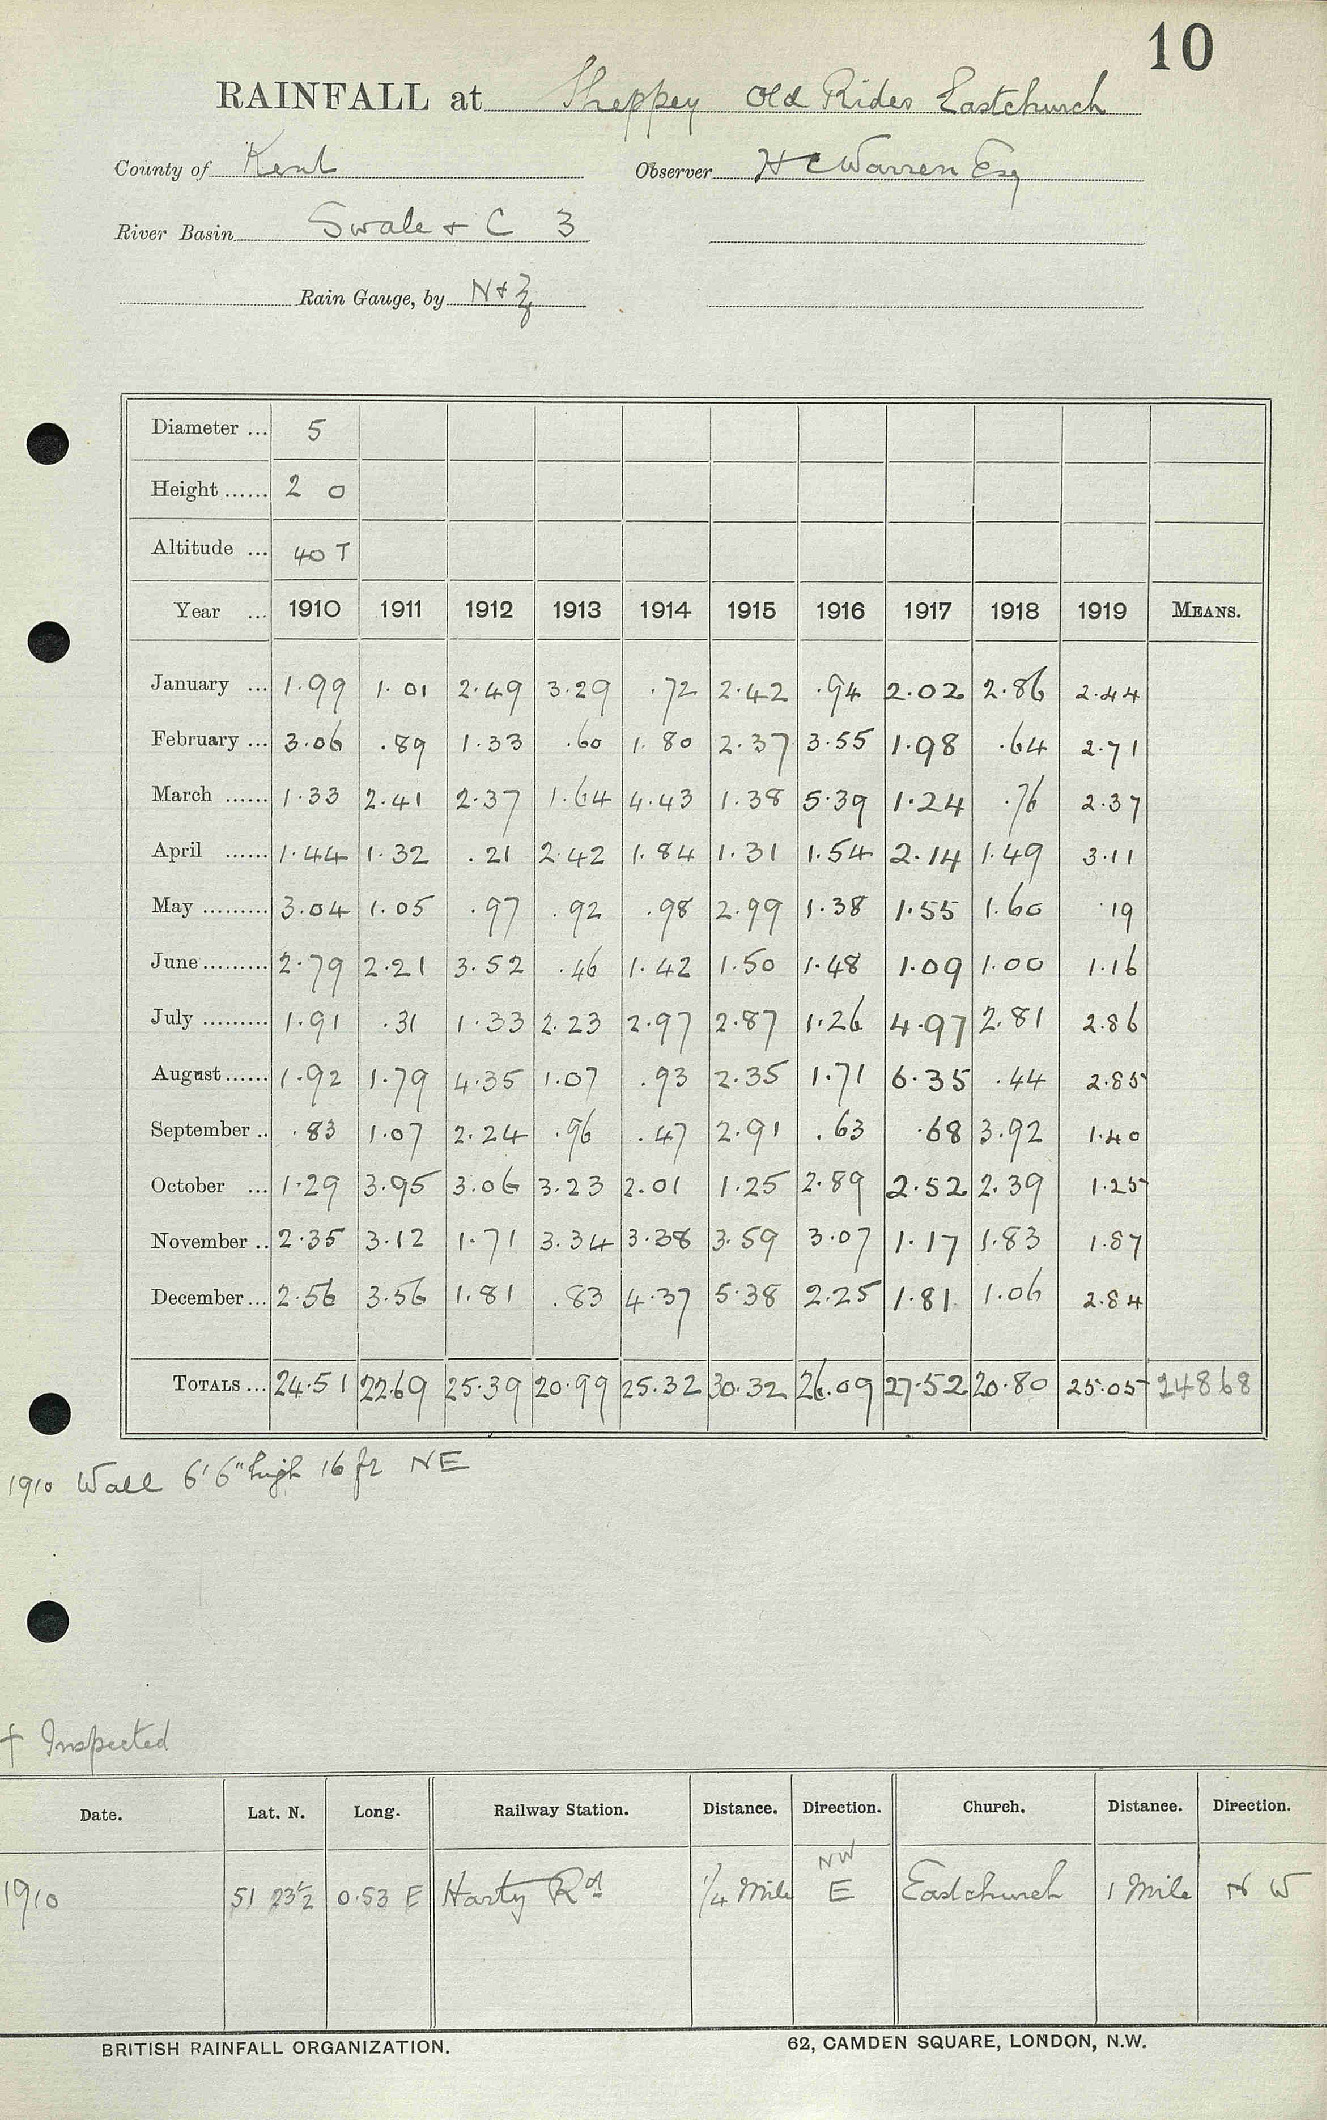 10
RAINFALL at Sheppey Old Rides Eastchurch
County of Kent Observer H C Warren Esq
River Basin Swale + C 3
Rain Gauge, by N + Z
Diameter ... 5
Height ...... 2 0
Altitude ... 40 T
Year ... 1910 1911 1912 1913 1914 1915 1916 1917 1918 1919 MEANS.
January ... 1.99 1.01 2.49 3.29 .72 2.42 .94 2.02 2.86 2.44
February ... 3.06 .89 1.33 .60 1.80 2.37 3.55 1.98 .64 2.71
March ...... 1.33 2.41 2.37 1.64 4.43 1.38 5.39 1.24 .76 2.37
April ...... 1.44 1.32 .21 2.42 1.84 1.31 1.54 2.14 1.49 3.11
May ......... 3.04 1.05 .97 .92 .98 2.99 1.38 1.55 1.60 .19
June ......... 2.79 2.21 3.52 .46 1.42 1.50 1.48 1.09 1.00 1.16
July ......... 1.91 .31 1.33 2.23 2.97 2.87 1.26 4.97 2.81 2.86
August ...... 1.92 1.79 4.35 1.07 .93 2.35 1.71 6.35 .44 2.85
September .. .83 1.07 2.24 .96 .47 2.91 .63 .68 3.92 1.40
October ... 1.29 3.95 3.06 3.23 2.01 1.25 2.89 2.52 2.39 1.25
November .. 2.35 3.12 1.71 3.34 3.38 3.59 3.07 1.17 1.83 1.87
December ... 2.56 3.56 1.81 .83 4.37 5.38 2.25 1.81 1.06 2.84
TOTALS ... 24.51 22.69 25.39 20.99 25.32 30.32 26.09 27.52 20.80 25.05 24868
1910 Wall 6' 6" high 16 ft NE
† Inspected
Date. Lat. N. Long. Railway Station. Distance. Direction. Church. Distance. Direction.
NW
1910 51 23½ 0.53 E Harty Rd 1/4 Mile E Eastchurch 1 Mile N W
BRITISH RAINFALL ORGANIZATION. 62, CAMDEN SQUARE, LONDON, N.W.